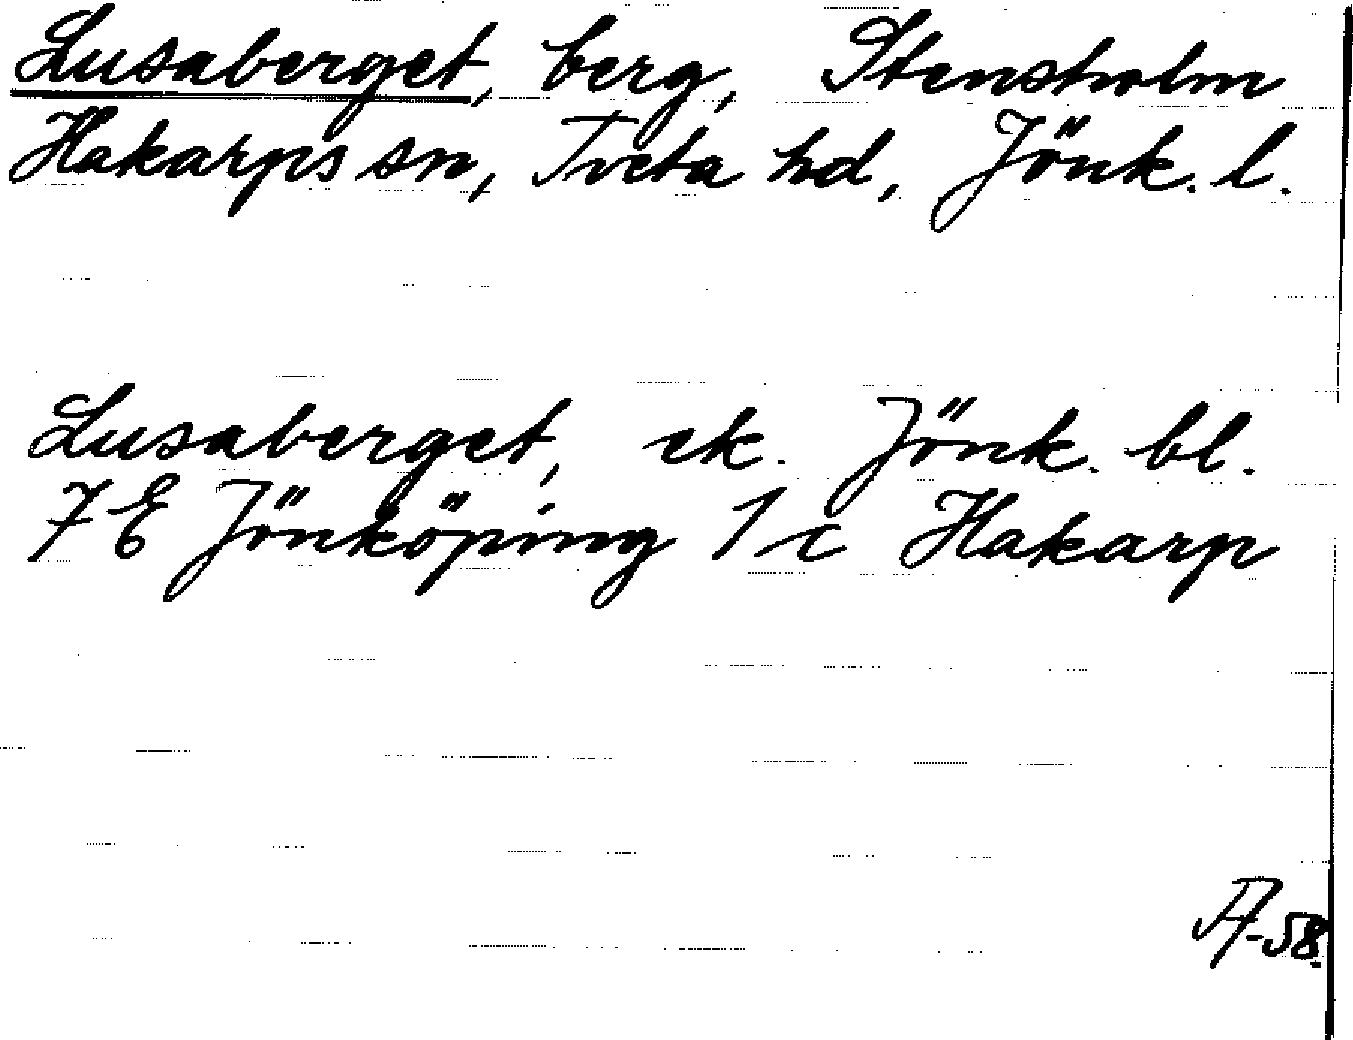 Lusaberget, berg, Stensholm
Hakarps sn, Tveta hd, Jönk. l.
Lusaberget, ek. Jönk. bl.
7 E Jönköping 1 c Hakarp
-58.